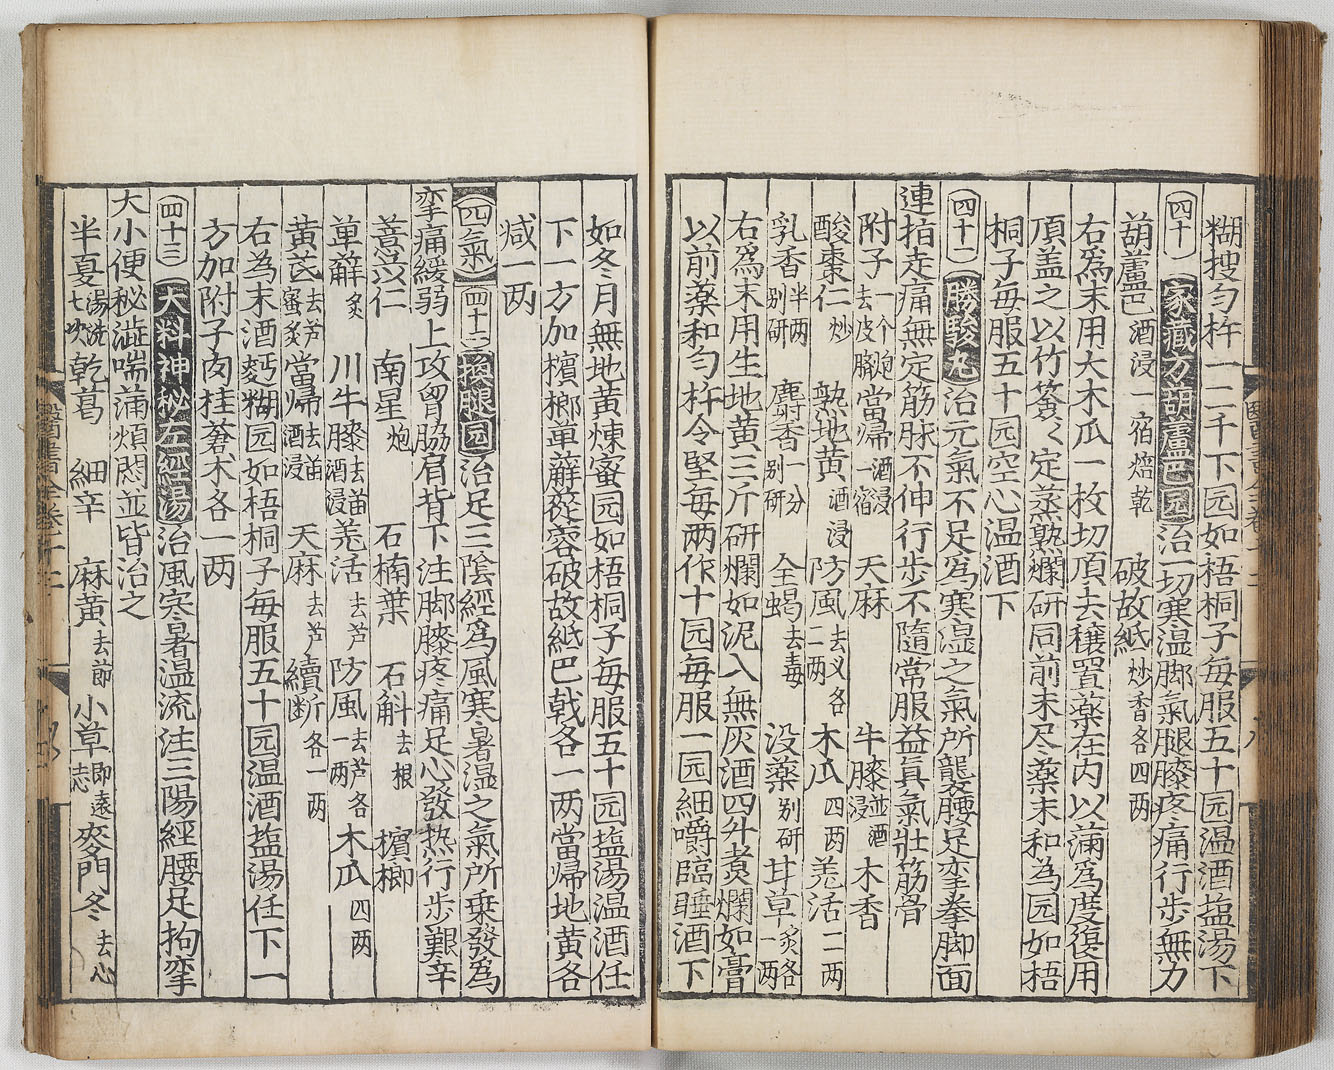 糊搜勻杵一二千下园如梧桐子每服五十园温酒塩湯下
四十 家藏方胡蘆巴园 治一切寒温脚氣腿膝疼痛行步無力
葫蘆巴酒浸一宿焙乾 破故紙炒香各四两
右為末用大木瓜一枚切頂去穰置薬在内以蒲為度復用
頂盖之以竹簽〻定蒸熟爛研同前末尽薬末和為园如梧
桐子每服五十园空心温酒下
四十一 勝駿丸 治元氣不足為寒湿之氣所襲腰足挛拳脚面
連指走痛無定筋脉不伸行步不隨常服益眞氣壯筋骨
附子一个炮去皮臍 當帰酒浸一宿 天麻 牛膝並酒浸 木香
酸棗仁炒 熟地黄酒浸 防風去义各二两 木瓜四两 羗活二两
乳香半两别研 麝香一分别研 全蝎去毒 没薬别研 甘草炙各一两
右為末用生地黄三斤研爛如泥入無灰酒四升煮爛如膏
以前薬和勻杵令堅每两作十园每服一园細嚼臨睡酒下
如冬月無地黄煉蜜园如梧桐子每服五十园塩湯温酒任
下一方加檳榔萆薢蓯蓉破故紙巴戟各一两當帰地黄各
减一两
四氣 四十二 換腿园 治足三陰經為風寒暑湿之氣所乗發為
挛痛緩弱上攻胷脇肩背下注脚膝疼痛足心發热行步艱辛
薏苡仁 南星炮 石楠葉 石斛去根 檳榔
萆薢炙 川牛膝去苗酒浸 羗活去芦 防風去芦各一两 木瓜四两
黄芪去芦蜜炙 當帰去苗酒浸 天麻去芦 續断各一两
右為末酒麪糊园如梧桐子每服五十园温酒塩湯任下一
方加附子肉桂蒼朮各一两
四十三 大料神秘左經湯 治風寒暑温流注三陽經腰足拘挛
大小便秘澁喘滿煩悶並皆治之
半夏湯洗七次 乾葛 細辛 麻黄去節 小草即遠志 麥門冬去心